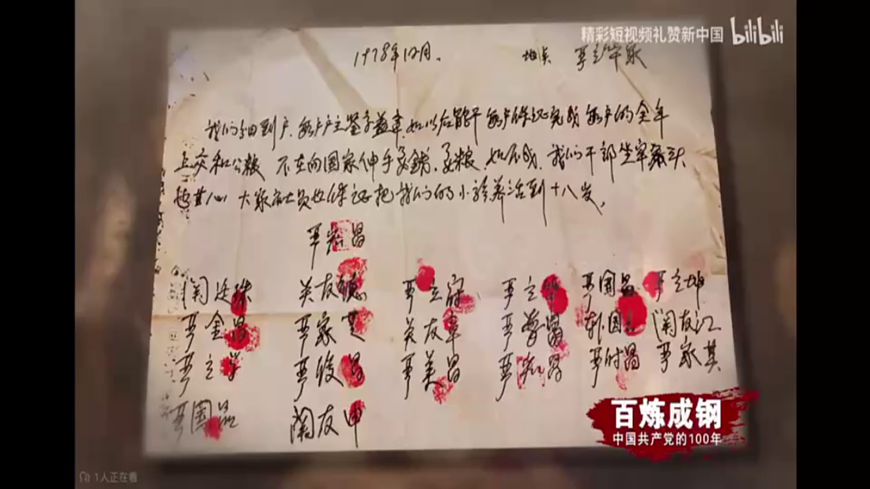 精彩短视频礼赞新中国 bilibili
1978年12月。 地点 严立华家
我们分田到户,每户户主签字盖章,如以后能干,每户保证完成每户的全年
上交和公粮 不在向国家伸手要钱,要粮,如不成,我们干部坐牢杀头
也甘心,大家社员也保证把我们的小孩养活到十八岁。
严宏昌
关廷珠 关友德 严立富 严立华 严国昌 严立坤
严金昌 严家芝 关友章 严学昌 韩国云 关友江
严立学 严俊昌 严美昌 严付昌 严家其
严国品 关友申
百炼成钢
中国共产党的100年
1人正在看